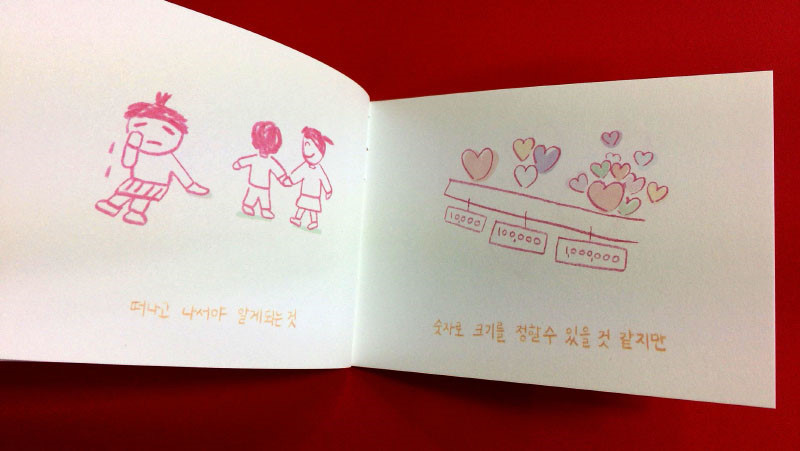 떠나고 나서야 알게되는 것
10,000
100,000
1,000,000
숫자로 크기를 정할수 있을 것 같지만